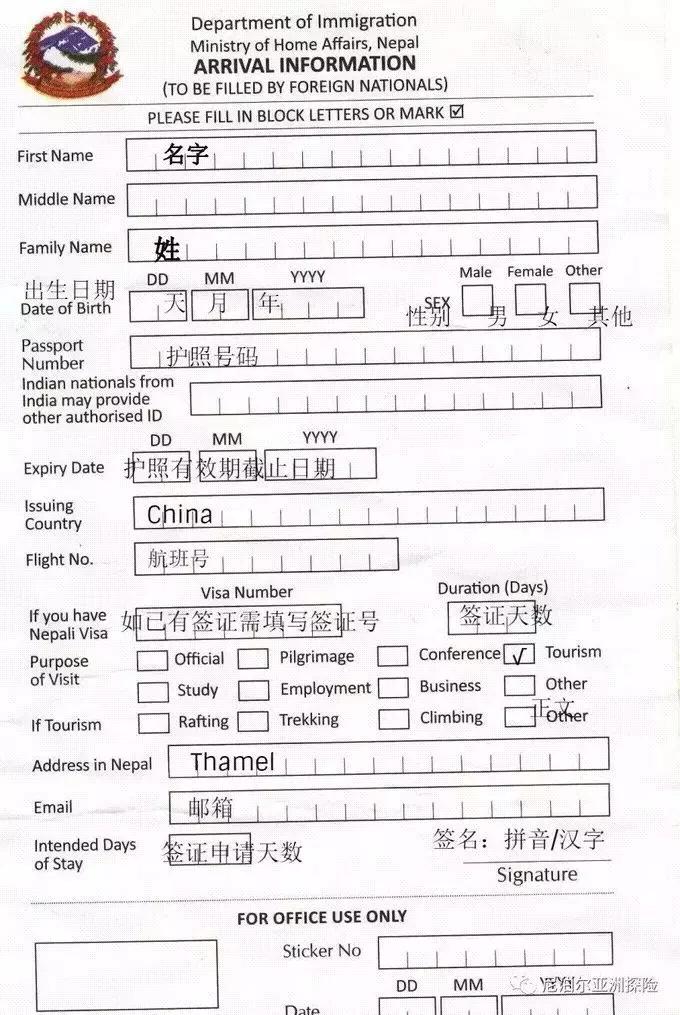 Department of Immigration
Ministry of Home Affairs, Nepal
ARRIVAL INFORMATION
(TO BE FILLED BY FOREIGN NATIONALS)
PLEASE FILL IN BLOCK LETTERS OR MARK ☑
First Name 名字
Middle Name
Family Name 姓
DD MM YYYY Male Female Other
出生日期 天 月 年 SEX
Date of Birth 性别 男 女 其他
Passport
Number 护照号码
Indian nationals from
India may provide
other authorised ID
DD MM YYYY
Expiry Date 护照有效期截止日期
Issuing
Country China
Flight No. 航班号
Visa Number Duration (Days)
If you have
Nepali Visa 如已有签证需填写签证号 签证天数
Purpose
of Visit
Official Pilgrimage Conference √ Tourism
Study Employment Business Other
正文
If Tourism Rafting Trekking Climbing Other
Address in Nepal Thamel
Email 邮箱
Intended Days
of Stay 签证申请天数
签名：拼音/汉字
Signature
FOR OFFICE USE ONLY
Sticker No
DD MM YYYY
Date
尼泊尔亚洲探险